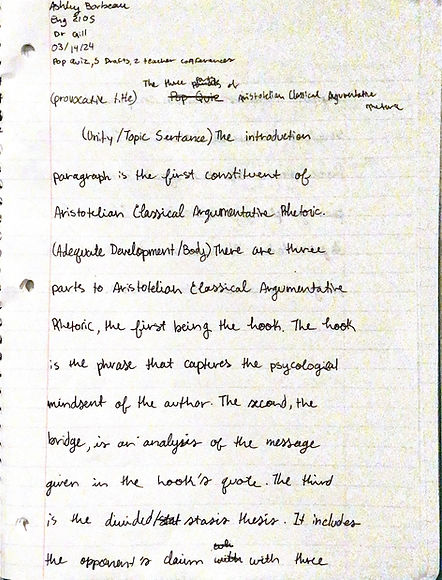 Ashley Barbeau
Eng 2105
Dr Gill
03/14/24
Pop Quiz, 5 Drafts, 2 teacher conferences
The three parts of
(provocative title) Pop Quiz Aristotelian Classical Argumentative
(Unity/Topic Sentence) The introduction
paragraph is the first constituent of
Aristotelian Classical Argumentative Rhetoric.
(Adequate Development/Body) There are three
parts to Aristotelian Classical Argumentative
Rhetoric, the first being the hook. The hook
is the phrase that captures the psycological
mindsent of the author. The second, the
bridge, is an analysis of the message
given in the hook's quote. The third
is the divided/stat stasis thesis. It includes
the opponent's claim with with three